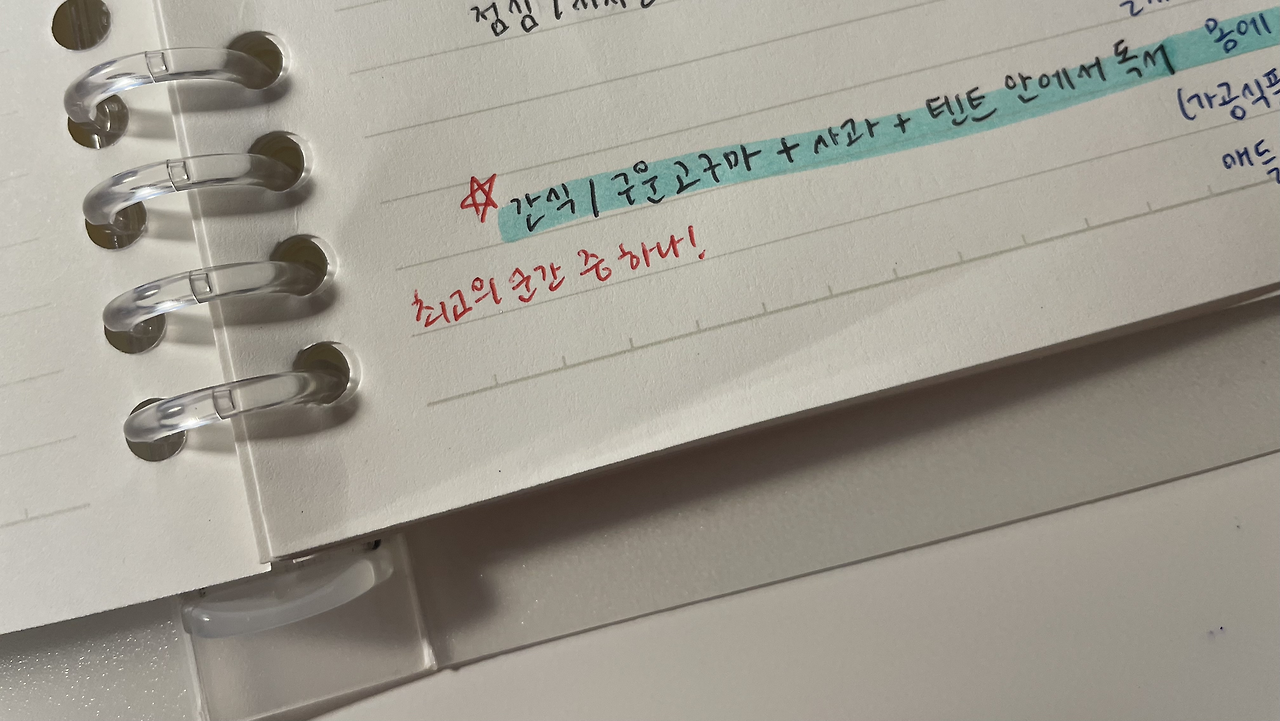 점심 /
☆ 간식 / 구운고구마 + 사과 + 텐트 안에서 독서
최고의 순간 중 하나!
몸에
(가공식품